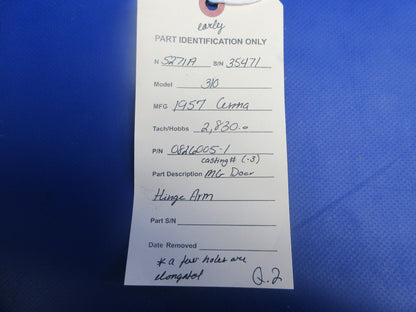 early
PART IDENTIFICATION ONLY
N 5271A S/N 35471
Model 310
MFG 1957 Cessna
Tach/Hobbs 2,830.0
P/N 0826005-1
casting# (-3)
Part Description MLG Door
Hinge Arm
Part S/N
Date Removed
* a few holes are
elongated
Q.2